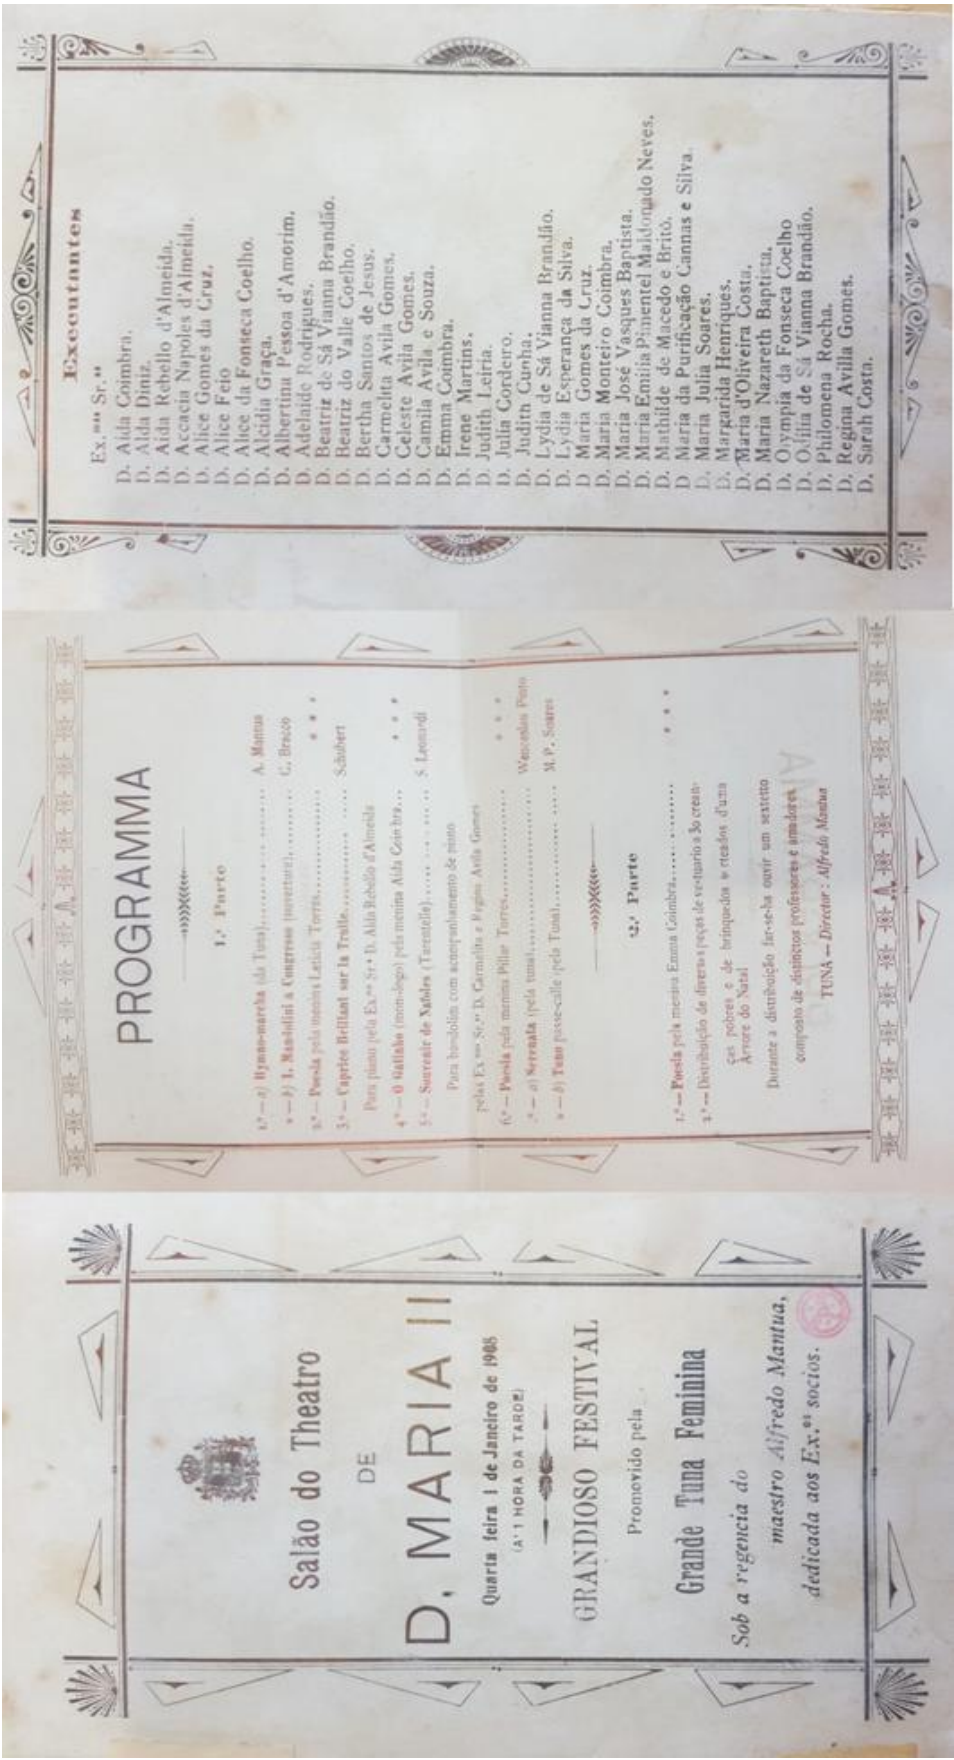 Salão do Theatro
DE
D. MARIA II
Quarta feira 1 de Janeiro de 1908
(A' 1 HORA DA TARDE)
GRANDIOSO FESTIVAL
Promovido pela
Grande Tuna Feminina
Sob a regencia do
maestro Alfredo Mantua,
dedicada aos Ex.ᵒˢ socios.
PROGRAMMA
1.ª Parte
1.º — a) Hymno-marcha (da Tuna) A. Mantua
» — b) I. Mandolini a Congresso (ouverture) C. Bracco
2.º — Poesia pela menina Leticia Torres * * *
3.º — Caprice Brillant sur la Truite Schubert
Para piano pela Ex.ᵐᵃ Sr.ª D. Aida Rebello d'Almeida
4.º — O Gatinho (monologo) pela menina Aida Coimbra * * *
5.º — Souvenir de Naples (Tarentelle) S Leonardi
Para bandolim com acompanhamento de piano
pelas Ex.ᵐᵃˢ Sr.ᵃˢ D. Carmelita e Regina Avila Gomes
6.º — Poesia pela menina Pillar Torres * * *
7.º — a) Serenata (pela tuna) Wenceslau Pinto
» — b) Tuno passe-calle (pela Tuna) M. P. Soares
2.ª Parte
1.º — Poesia pela menina Emma Coimbra * * *
2.º — Distribuição de diversas peças de vestuario a 30 crean-
ças pobres e de brinquedos sorteados d'uma
Arvore do Natal
Durante a distribuição far-se-ha ouvir um sextetto
composto de distinctos professores e amadores
TUNA — Director : Alfredo Mantua
Executantes
Ex.ᵐᵃˢ Sr.ᵃˢ
D. Aida Coimbra.
D. Alda Diniz.
D. Aida Rebello d'Almeida.
D. Accacia Napoles d'Almeida.
D. Alice Gomes da Cruz.
D. Alice Feio
D. Alice da Fonseca Coelho.
D. Alcidia Graça.
D. Albertina Pessoa d'Amorim.
D. Adelaide Rodrigues.
D. Beatriz de Sá Vianna Brandão.
D. Beatriz do Valle Coelho.
D. Bertha Santos de Jesus.
D. Carmelita Avila Gomes.
D. Celeste Avila Gomes.
D. Camila Avila e Souza.
D. Emma Coimbra.
D. Irene Martins.
D. Judith Leiria.
D. Julia Cordeiro.
D. Judith Cunha.
D. Lydia de Sá Vianna Brandão.
D. Lydia Esperança da Silva.
D Maria Gomes da Cruz.
D. Maria Monteiro Coimbra.
D. Maria José Vasques Baptista.
D. Maria Emilia Pimentel Maldonado Neves.
D. Mathilde de Macedo e Brito.
D Maria da Purificação Cannas e Silva.
D. Maria Julia Soares.
D. Margarida Henriques.
D. Maria d'Oliveira Costa.
D. Maria Nazareth Baptista.
D. Olympia da Fonseca Coelho
D. Ofilia de Sá Vianna Brandão.
D. Philomena Rocha.
D. Regina Avilla Gomes.
D. Sarah Costa.